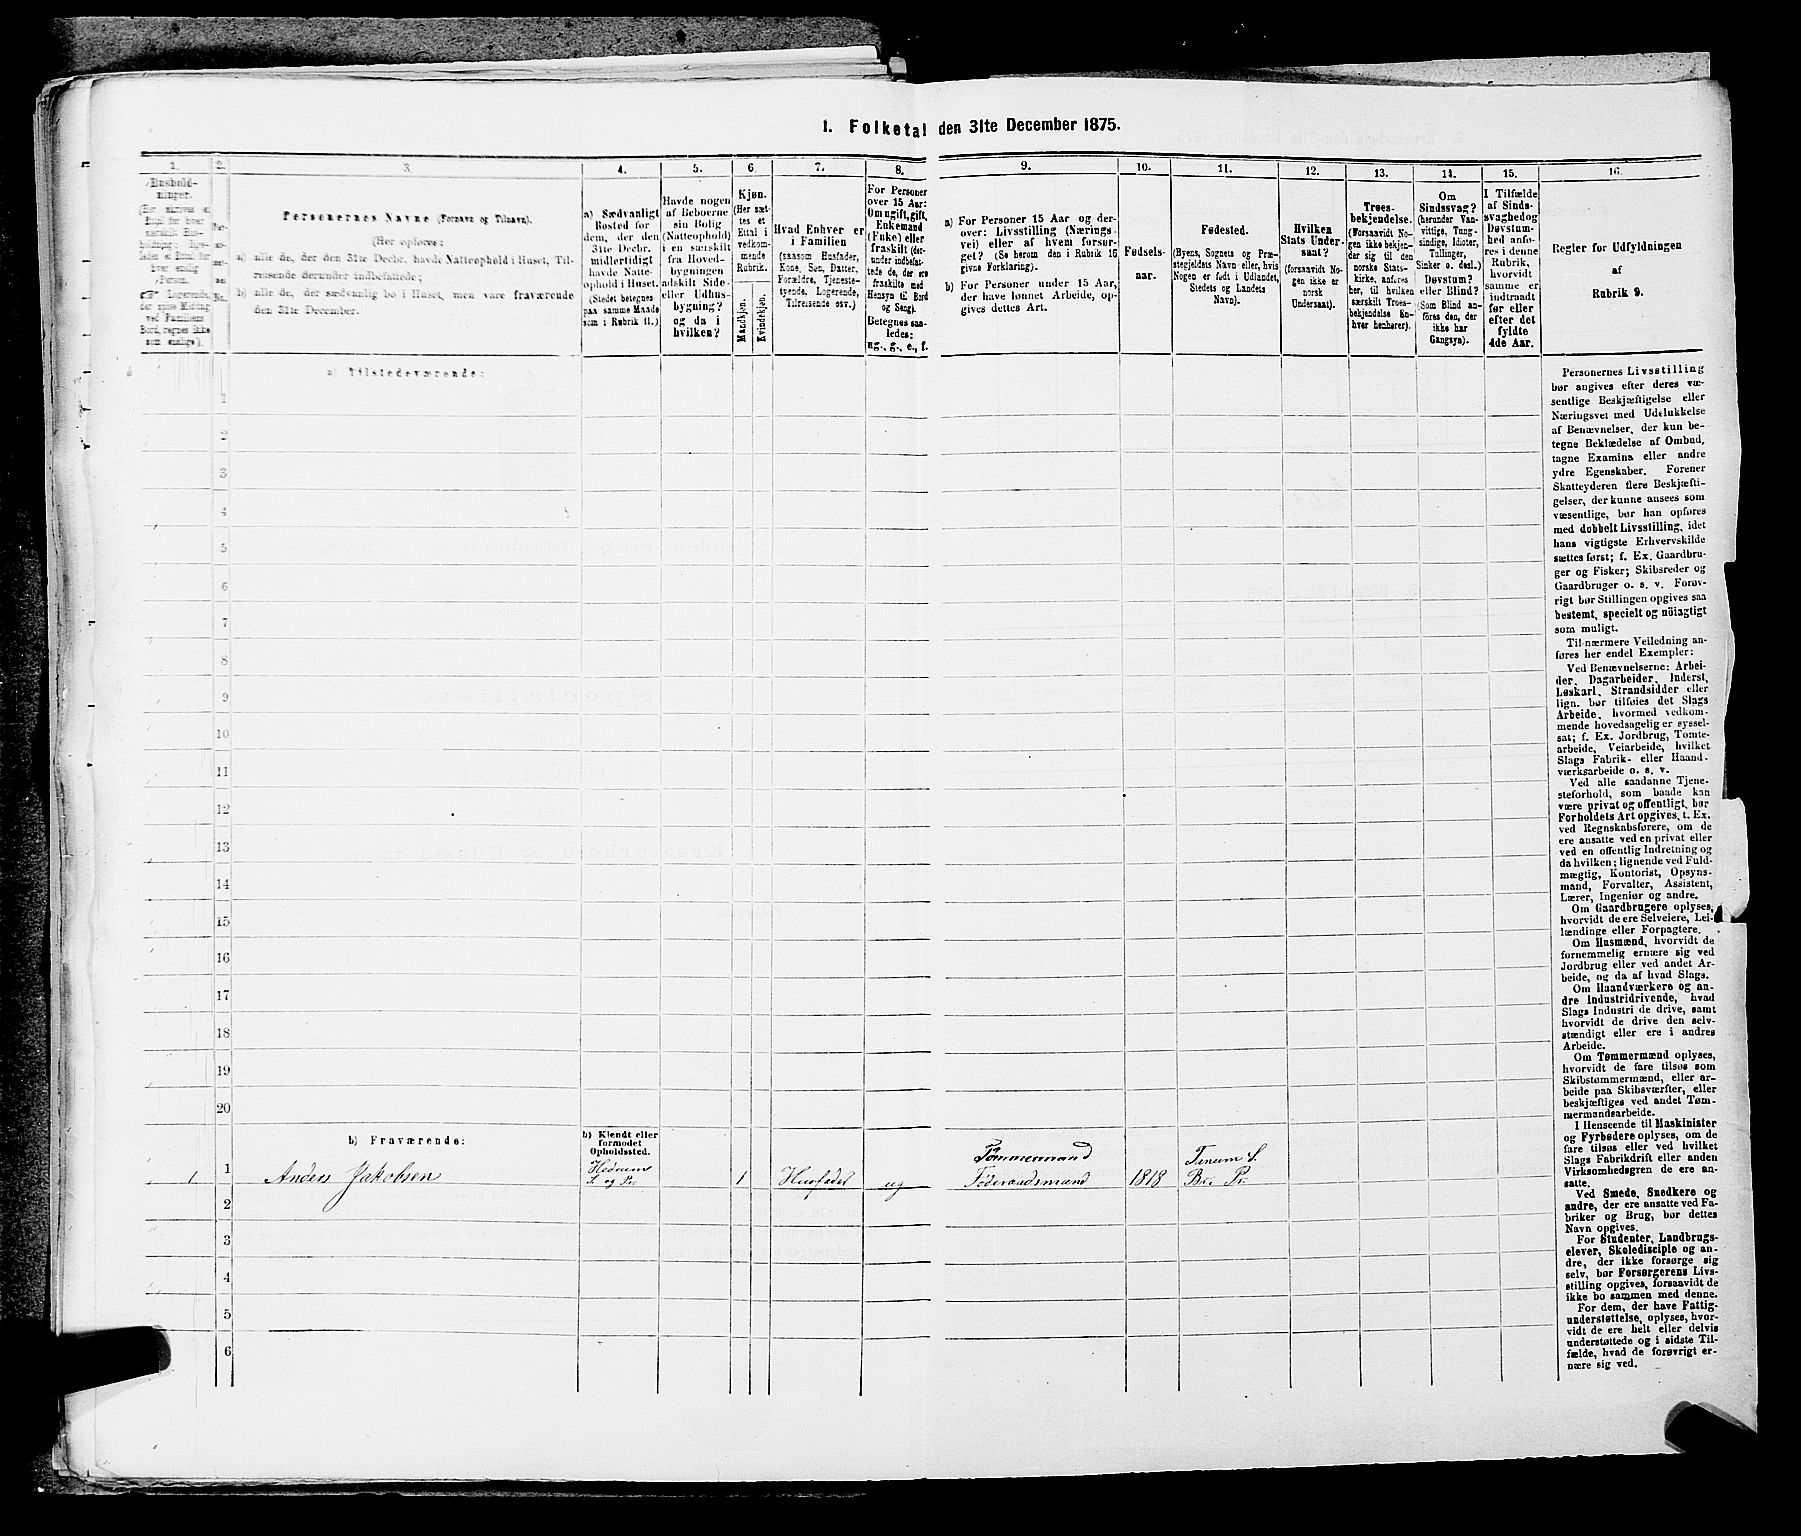 1. Folketal den 31te December 1875.
1.
Hushold-
ninger.
(Her skrives et
Ettal for hver
særskilt Hus-
holdning; lige-
ledes et Ettal for
hver enslig
Person.
Logerende,
der spise Middag
ved Familiens
Bord, regnes ikke
som enslige).
2.
3.
Personernes Navne (Fornavn og Tilnavn).
(Her opføres:
a) alle de, der den 31te Decbr. havde Natteophold i Huset, Til-
reisende derunder indbefattede;
b) alle de, der sædvanlig bo i Huset, men vare fraværende
den 31te December.
4.
a) Sædvanligt
Bosted for
dem, der den
31te Decbr.
midlertidigt
havde Natte-
ophold i Huset.
(Stedet betegnes
paa samme Maade
som i Rubrik 11.)
5.
Havde nogen
af Beboerne
sin Bolig
(Natteophold)
i en særskilt
fra Hoved-
bygningen
adskilt Side-
eller Udhus-
bygning?
og da i
hvilken?
6.
Kjøn.
(Her sæt-
tes et
Ettal i
vedkom-
mende
Rubrik.
Mandkjøn.
Kvindekjøn.
7.
Hvad Enhver er
i Familien
(saasom Husfader,
Kone, Søn, Datter,
Forældre, Tjeneste-
tyende, Logerende,
Tilreisende osv.)
8.
For Personer
over 15 Aar:
Om ugift, gift,
Enkemand
(Enke) eller
fraskilt (der-
under indbefat-
tede de, der ere
fraskilte med
Hensyn til Bord
og Seng).
Betegnes saa-
ledes:
ug., g., e., f.
9.
a) For Personer 15 Aar og der-
over: Livsstilling (Nærings-
vei) eller af hvem forsør-
get? (Se herom den i Rubrik 16
givne Forklaring).
b) For Personer under 15 Aar,
der have lønnet Arbeide, op-
gives dettes Art.
10.
Fødsels-
aar.
11.
Fødested.
(Byens, Sognets og Præ-
stegjeldets Navn eller, hvis
Nogen er født i Udlandet,
Stedets og Landets
Navn).
12.
Hvilken
Stats Under-
saat?
(forsaavidt No-
gen ikke er
norsk
Undersaat).
13.
Troes-
bekjendelse.
(Forsaavidt No-
gen ikke bekjen-
der sig til den
norske Stats-
kirke, anføres
her, til hvilken
særskilt Troes-
bekjendelse En-
hver henhører).
14.
Om
Sindssvag?
(herunder Van-
vittige, Tung-
sindige, Idioter,
Tullinger,
Sinker o. desl.)
Døvstum?
eller Blind?
(Som Blind an-
føres den, der
ikke har
Gangsyn).
15.
I Tilfælde
af Sinds-
svaghed og
Døvstum-
hed anfø-
res i denne
Rubrik,
hvorvidt
samme er
indtraadt
før eller
efter det
fyldte
4de Aar.
16.
Regler for Udfyldningen
af
Rubrik 9.
a) Tilstedeværende:
1
2
3
4
5
6
7
8
9
10
11
12
13
14
15
16
17
18
19
20
b) Fraværende:
b) Kjendt eller
formodet
Opholdssted.
1 1 Anders Jakobsen Hedrums S. og Pr. 1 Husfader ug Tømmermand Føderaadsmand 1818 Tanum S. Br. Pr.
2
3
4
5
6
Personernes Livsstilling
bør angives efter deres væ-
sentlige Beskjæftigelse eller
Næringsvei med Udelukkelse
af Benævnelser, der kun be-
tegne Beklædelse af Ombud,
tagne Examina eller andre
ydre Egenskaber. Forener
Skatteyderen flere Beskjæfti-
gelser, der kunne ansees som
væsentlige, bør han opføres
med dobbelt Livsstilling, idet
hans vigtigste Erhvervskilde
sættes først; f. Ex. Gaardbru-
ger og Fisker; Skibsreder og
Gaardbruger o. s. v. Forøv-
rigt bør Stillingen opgives saa
bestemt, specielt og nöiagtigt
som muligt.
Til nærmere Veiledning an-
føres her endel Exempler:
Ved Benævnelserne: Arbei-
der, Dagarbeider, Inderst,
Løskarl, Strandsidder eller
lign. bør tilføies det Slags
Arbeide, hvormed vedkom-
mende hovedsagelig er syssel-
sat; f. Ex. Jordbrug, Tomte-
arbeide, Veiarbeide, hvilket
Slags Fabrik- eller Haand-
værksarbeide o. s. v.
Ved alle saadanne Tjene-
steforhold, som baade kan
være privat og offentligt, bør
Forholdets Art opgives, t. Ex.
ved Regnskabsførere, om de
ere ansatte ved en privat eller
ved en offentlig Indretning og
da hvilken; lignende ved Fuld-
mægtig, Kontorist, Opsyns-
mand, Forvalter, Assistent,
Lærer, Ingeniør og andre.
Om Gaardbrugere oplyses,
hvorvidt de ere Selveiere, Lei-
lændinge eller Forpagtere.
Om Husmænd, hvorvidt de
fornemmelig ernære sig ved
Jordbrug eller ved andet Ar-
beide, og da af hvad Slags.
Om Haandværkere og an-
dre Industridrivende, hvad
Slags Industri de drive, samt
hvorvidt de drive den selv-
stændigt eller ere i andres
Arbeide.
Om Tømmermænd oplyses,
hvorvidt de fare tilsøs som
Skibstømmermænd, eller ar-
beide paa Skibsværfter, eller
beskjæftiges ved andet Tøm-
mermandsarbeide.
I Henseende til Maskinister
og Fyrbødere oplyses, om de
fare tilsøs eller ved hvilket
Slags Fabrikdrift eller anden
Virksomhedsgren de ere an-
satte.
Ved Smede, Snedkere og
andre, der ere ansatte ved Fa-
briker og Brug, bør dettes
Navn opgives.
For Studenter, Landbrugs-
elever, Skoledisciple og an-
dre, der ikke forsørge sig
selv, bør Forsørgerens Livs-
stilling opgives, forsaavidt de
ikke bo sammen med denne.
For dem, der have Fattig-
understøttelse, oplyses, hvor-
vidt de ere helt eller delvis
understøttede og i sidste Til-
fælde, hvad de forøvrigt er-
nære sig ved.